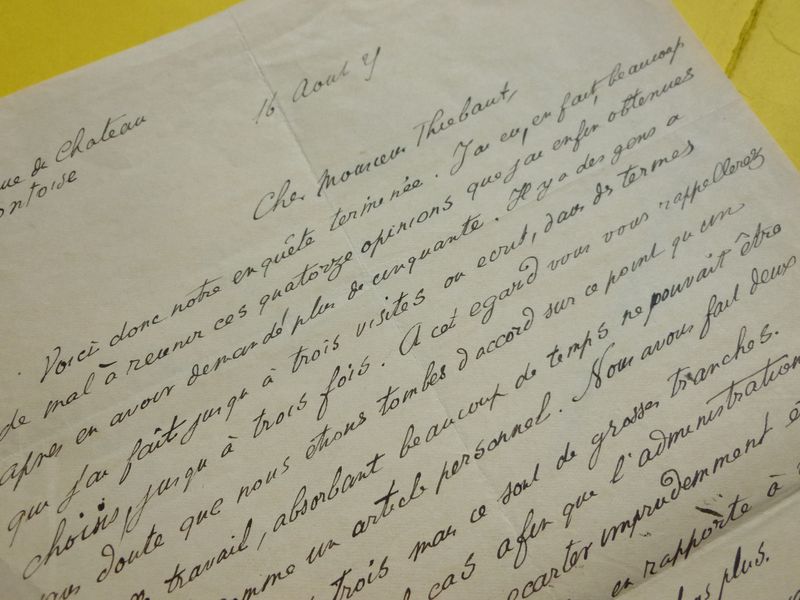 ue du Chateau
ontoise
16 Aout
Cher Monsieur Thiebaut,
Voici donc notre enquête terminée. J'ai eu, en fait, beaucoup
de mal à reunir ces quatorze opinions que j'ai enfin obtenues
après en avoir demandé plus de cinquante. Il y a des gens a
qui j'ai fait jusqu'à trois visites ou ecrit, dans des termes
choisis, jusqu'à trois fois. A cet egard vous vous rappellerez
sans doute que nous étions tombés d'accord sur ce point qu'un
travail, absorbant beaucoup de temps ne pouvait être
omme un article personnel. Nous avons fait deux
trois mais ce sont de grosses tranches.
cas afin que l'administration
ecarter imprudemment
en rapporte à
plus.